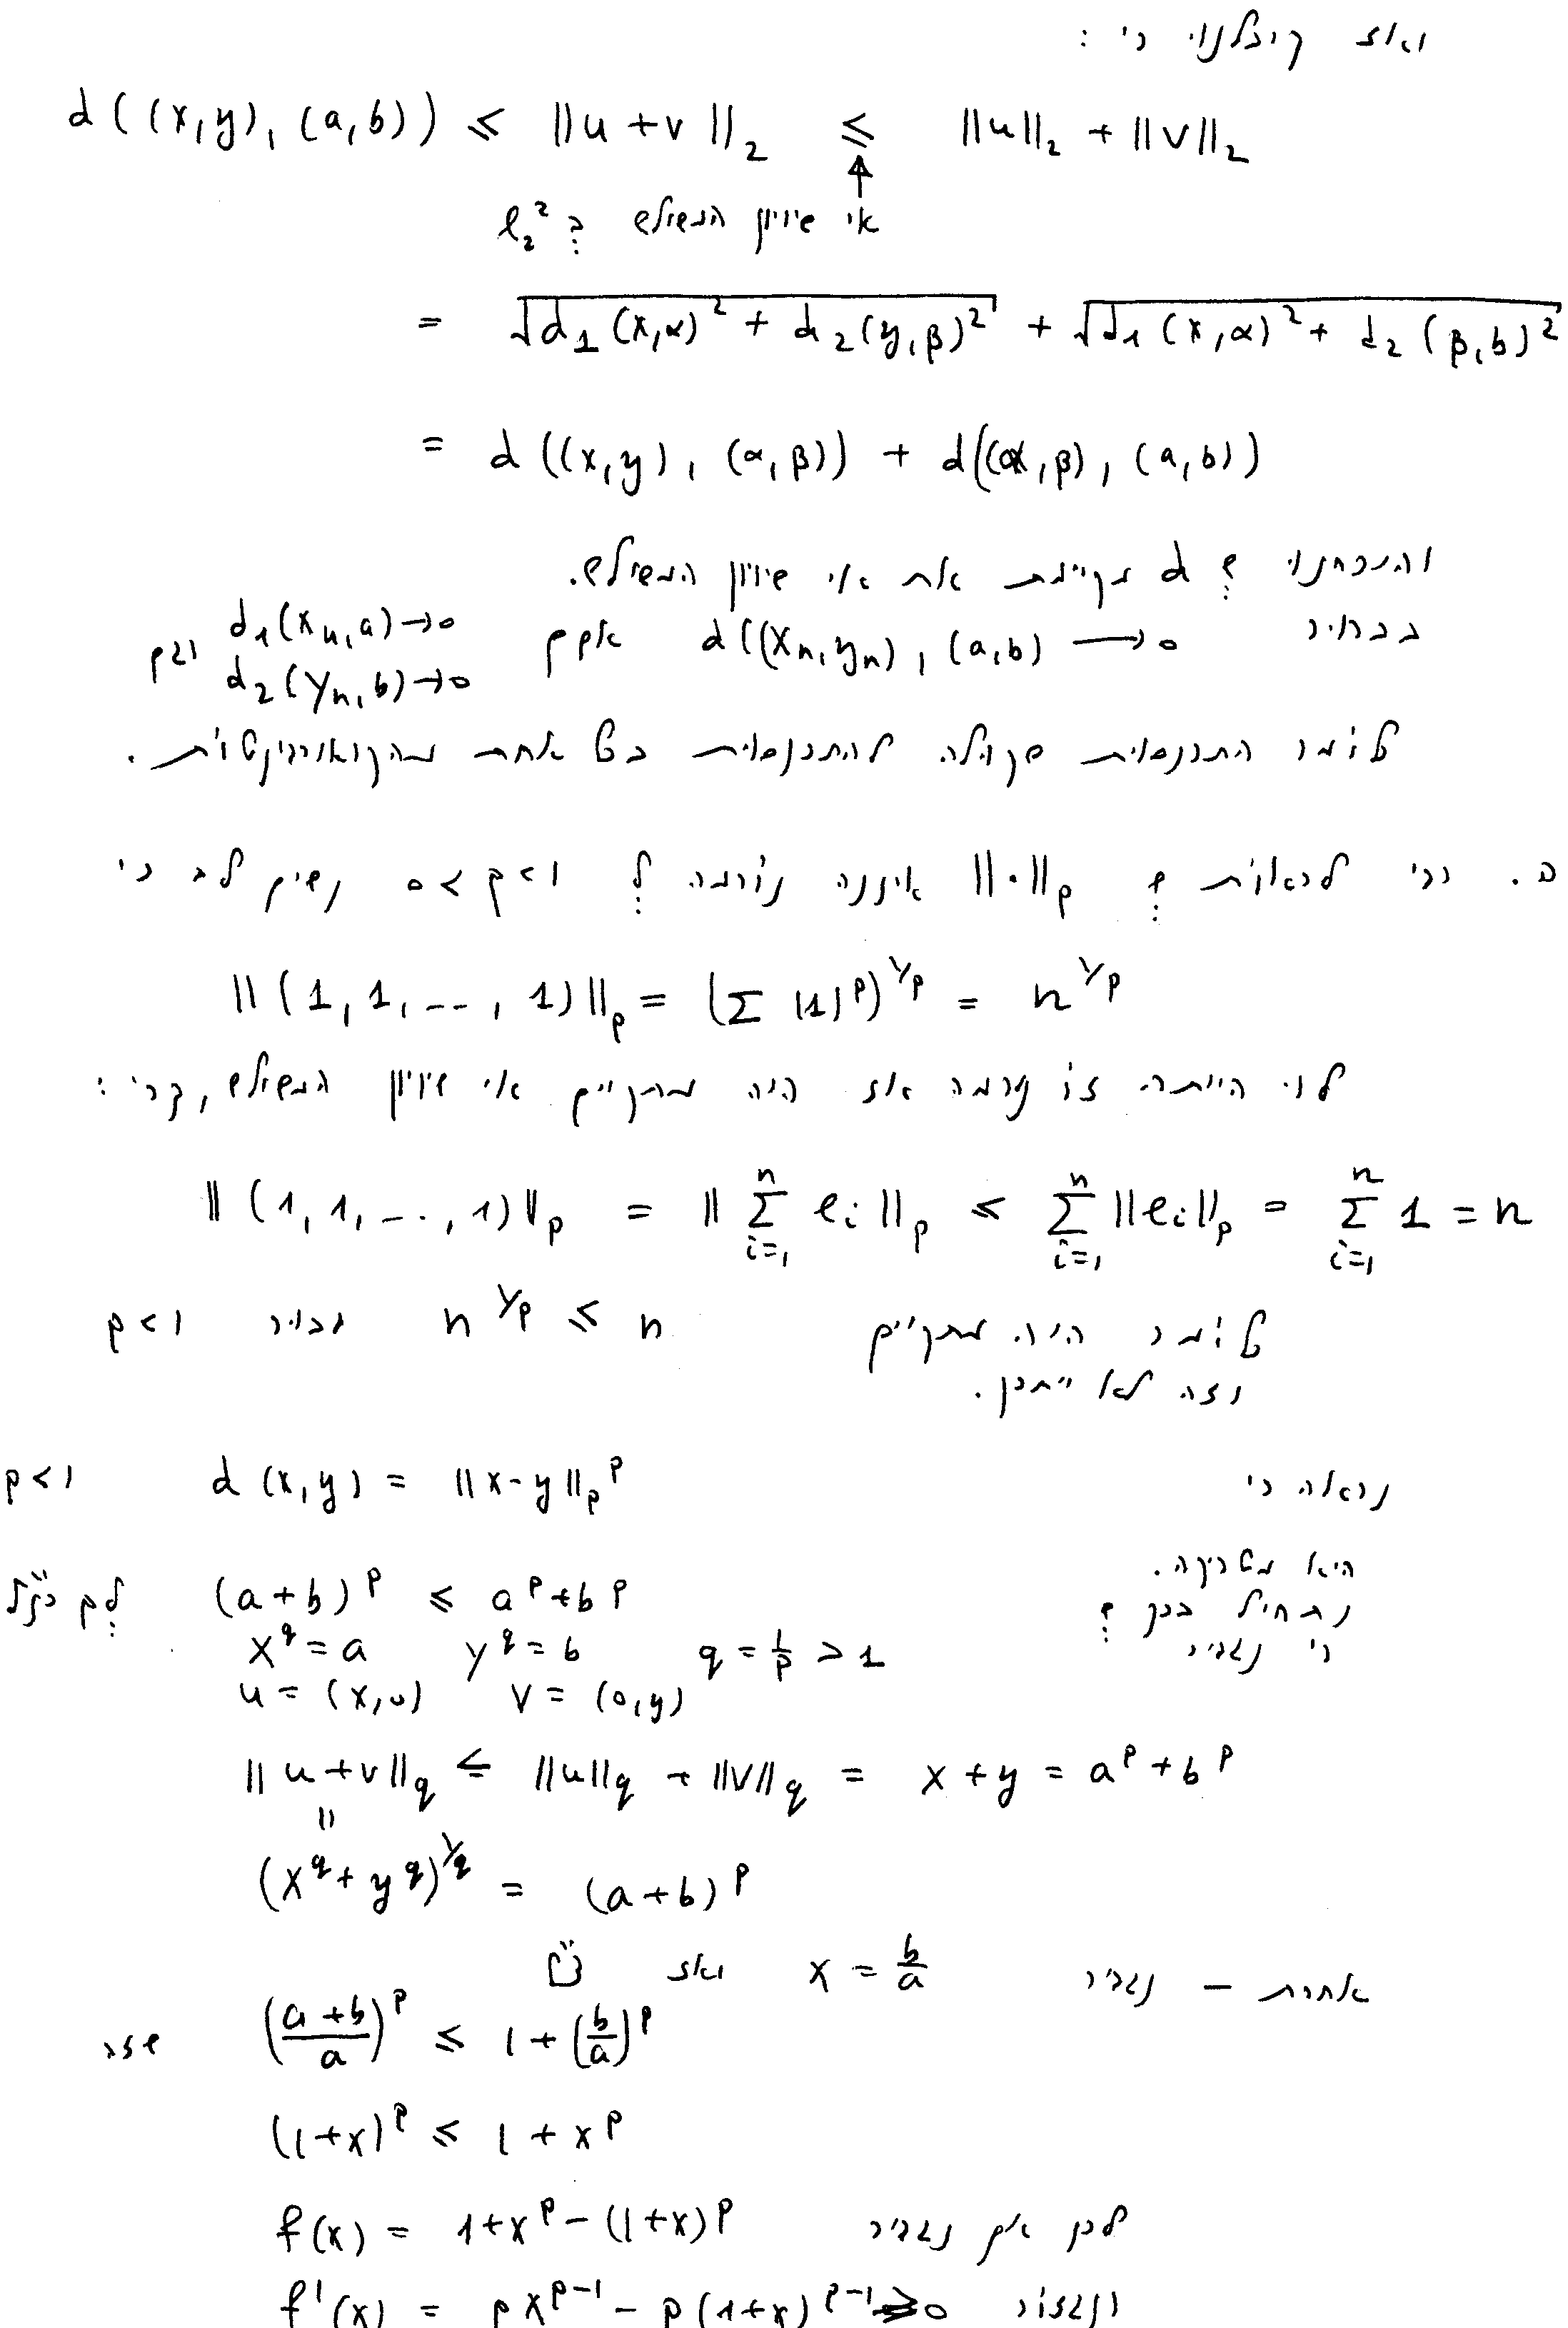 ואז קיבלנו כי :
d((x,y),(a,b)) ≤ ||u+v||₂ ≤ ||u||₂ + ||v||₂
↑
אי שיוויון המשולש ב: ℓ₂²
= √(d₁(x,α)² + d₂(y,β)²) + √(d₁(x,α)² + d₂(β,b)²)
= d((x,y),(α,β)) + d((α,β),(a,b))
והוכחנו ש: d מקיימת את אי שיוויון המשולש.
בבירור d((xₙ,yₙ),(a,b) → 0 אםם d₁(xₙ,a)→0 וגם d₂(yₙ,b)→0
כלומר התכנסות שקולה להתכנסות בכל אחת מהקואורדינטות.
ב. כדי לראות ש: ||·||ₚ איננה נורמה ל: 0<p<1 נשים לב כי
||(1,1,--,1)||ₚ = (Σ|1|ᵖ)^{1/p} = n^{1/p}
לו הייתה זו נורמה אז היה מתקיים אי שיוויון המשולש, קרי :
||(1,1,-..,1)||ₚ = ||Σ_{i=1}^{n} eᵢ||ₚ ≤ Σ_{i=1}^{n} ||eᵢ||ₚ = Σ_{i=1}^{n} 1 = n
כלומר היה מתקיים n^{1/p} ≤ n עבור p<1
וזה לא ייתכן.
נראה כי d(x,y) = ||x-y||ₚᵖ p<1
היא מטריקה.
נתחיל בכך ש: (a+b)ᵖ ≤ aᵖ+bᵖ
כי נגדיר x^q = a y^q = b q = 1/p > 1
u = (x,0) v = (0,y)
||u+v||_q ≤ ||u||_q + ||v||_q = x+y = aᵖ+bᵖ
||
(x^q + y^q)^{1/q} = (a+b)ᵖ
אחרת – נגדיר x = b/a ואז
((a+b)/a)ᵖ ≤ 1 + (b/a)ᵖ שזה
(1+x)ᵖ ≤ 1 + xᵖ
לכן אם נגדיר f(x) = 1+xᵖ-(1+x)ᵖ
ונגזור f'(x) = pxᵖ⁻¹ - p(1+x)ᵖ⁻¹ ≥ 0